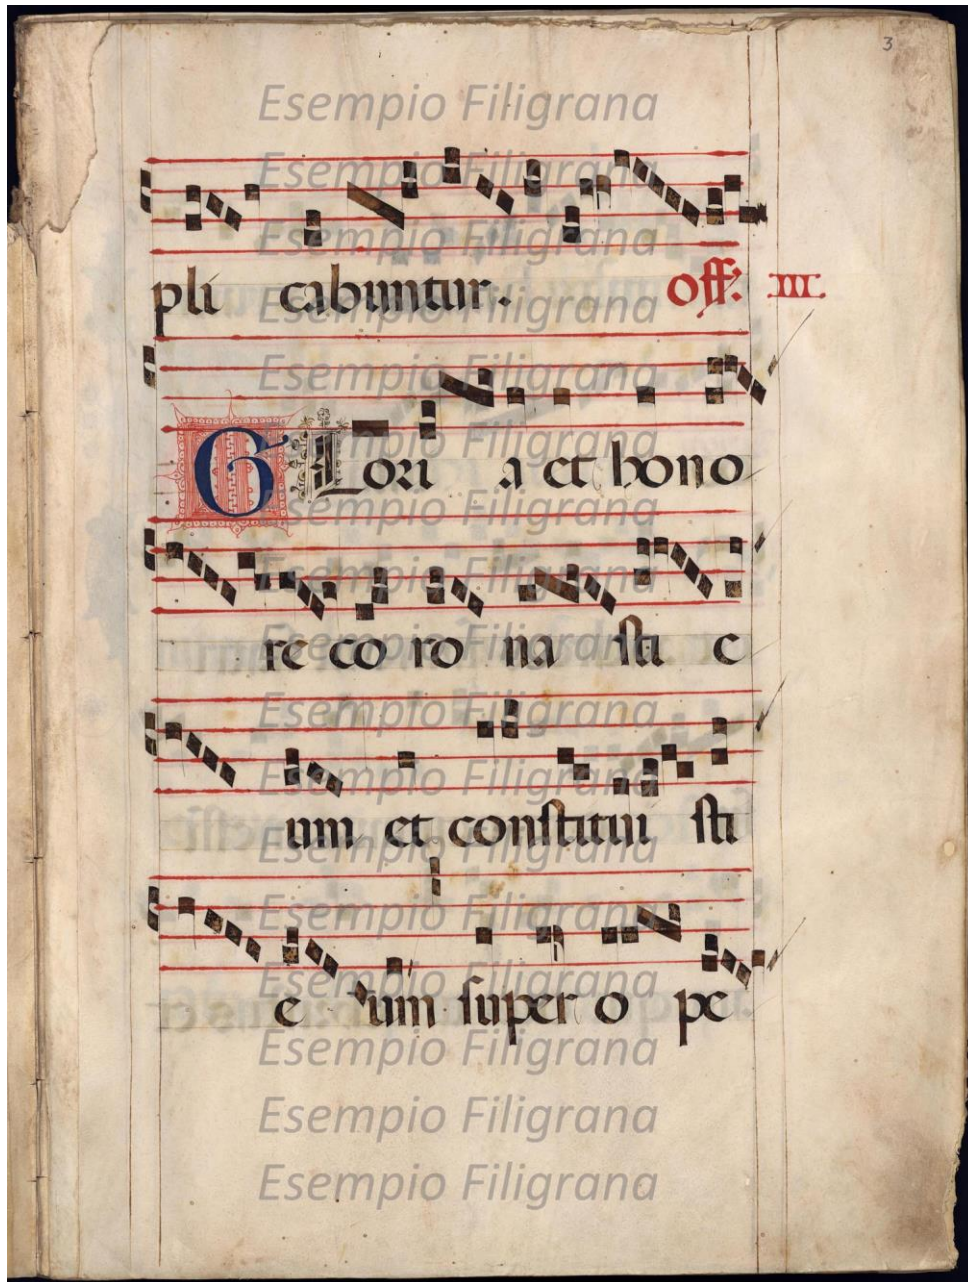 3
Esempio Filigrana
Esempio Filigrana
Esempio Filigrana
Esempio Filigrana
pli cabuntur. Off. III.
Esempio Filigrana
Esempio Filigrana
GLori a et hono
Esempio Filigrana
Esempio Filigrana
Esempio Filigrana
re co ro na sti e
Esempio Filigrana
Esempio Filigrana
um et constitui sti
Esempio Filigrana
Esempio Filigrana
Esempio Filigrana
e um super o pe
Esempio Filigrana
Esempio Filigrana
Esempio Filigrana